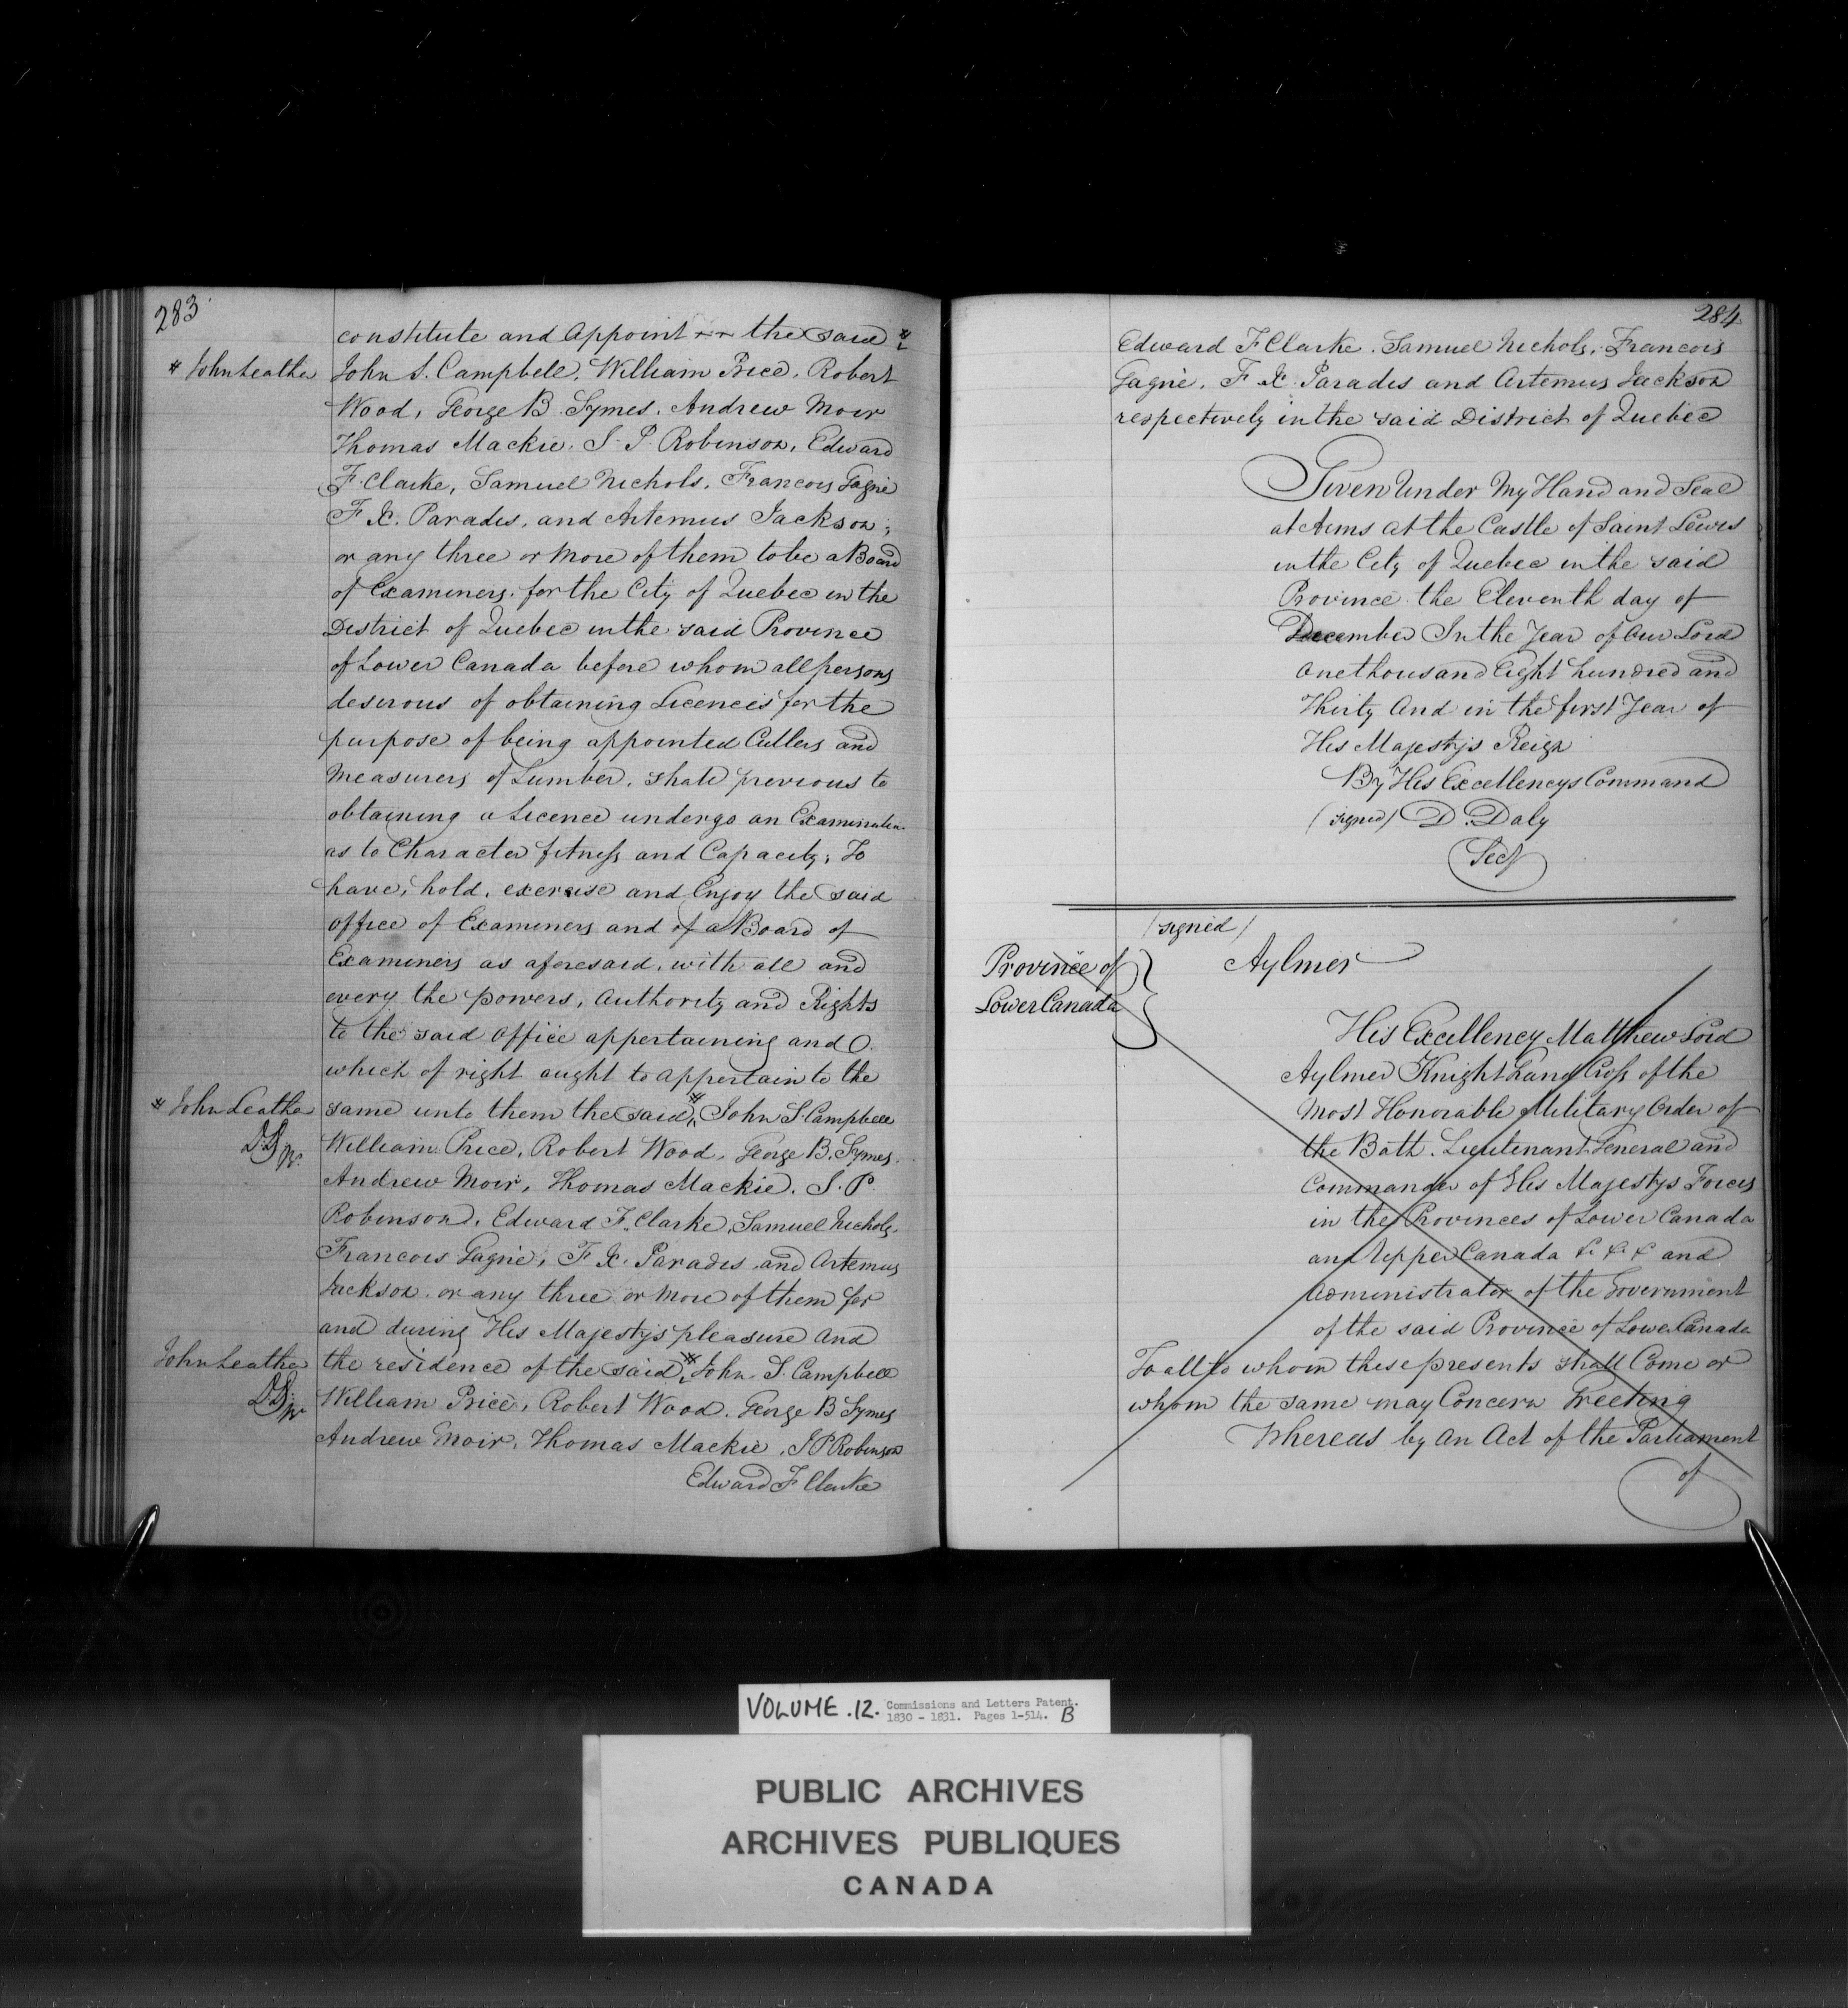 283
constitute and appoint the said #
# John Leather
John S. Campbell, William Price, Robert
Wood, George B. Symes, Andrew Moir
Thomas Mackie, S. P. Robinson, Edward
F. Clarke, Samuel Nichols, Francois Gagné
F. X. Parades, and Artemus Jackson;
or any three or more of them to be a Board
of Examiners for the City of Quebec in the
District of Quebec in the said Province
of Lower Canada before whom all persons
desirous of obtaining Licences for the
purpose of being appointed Cullers and
Measurers of Lumber, shall previous to
obtaining a Licence undergo an Examination
as to Character fitness and Capacity, To
have, hold, exercise and Enjoy the said
office of Examiners and of a Board of
Examiners as aforesaid, with all and
every the powers, authority and Rights
to the said office appertaining and
which of right ought to appertain to the
# John Leather
same unto them the said # John S. Campbell
William Price, Robert Wood, George B. Symes.
Andrew Moir, Thomas Mackie, S. P.
Robinson, Edward F. Clarke, Samuel Nichols,
Francois Gagné, F. X. Parades, and Artemus
Jackson or any three or more of them for
and during His Majestys pleasure and
John Leather
the residence of the said # John S. Campbell
William Price, Robert Wood, George B Symes
Andrew Moir, Thomas Mackie, S P Robinson
Edward F Clarke
284
Edward F Clarke, Samuel Nichols, Francois
Gagné, F. X. Parades and Artemus Jackson
respectively in the said District of Quebec
Given Under My Hand and Seal
at Arms at the Castle of Saint Lewis
in the City of Quebec in the said
Province the Eleventh day of
December In the Year of Our Lord
One thousand Eight hundred and
Thirty And in the first Year of
His Majestys Reign
By His Excellencys Command
(signed) D. Daly
Secy
(signed)
Aylmer
Province of
Lower Canada
His Excellency Matthew Lord
Aylmer Knight Grand Cross of the
Most Honorable Military Order of
the Bath, Lieutenant General and
Commander of His Majestys Forces
in the Provinces of Lower Canada
and Upper Canada &c &c &c and
Administrator of the Government
of the said Province of Lower Canada
To all to whom these presents shall Come or
whom the same may Concern Greeting
Whereas by An Act of the Parliament
of
VOLUME. 12. Commissions and Letters Patent.
1830 - 1831. Pages 1-514. B
PUBLIC ARCHIVES
ARCHIVES PUBLIQUES
CANADA